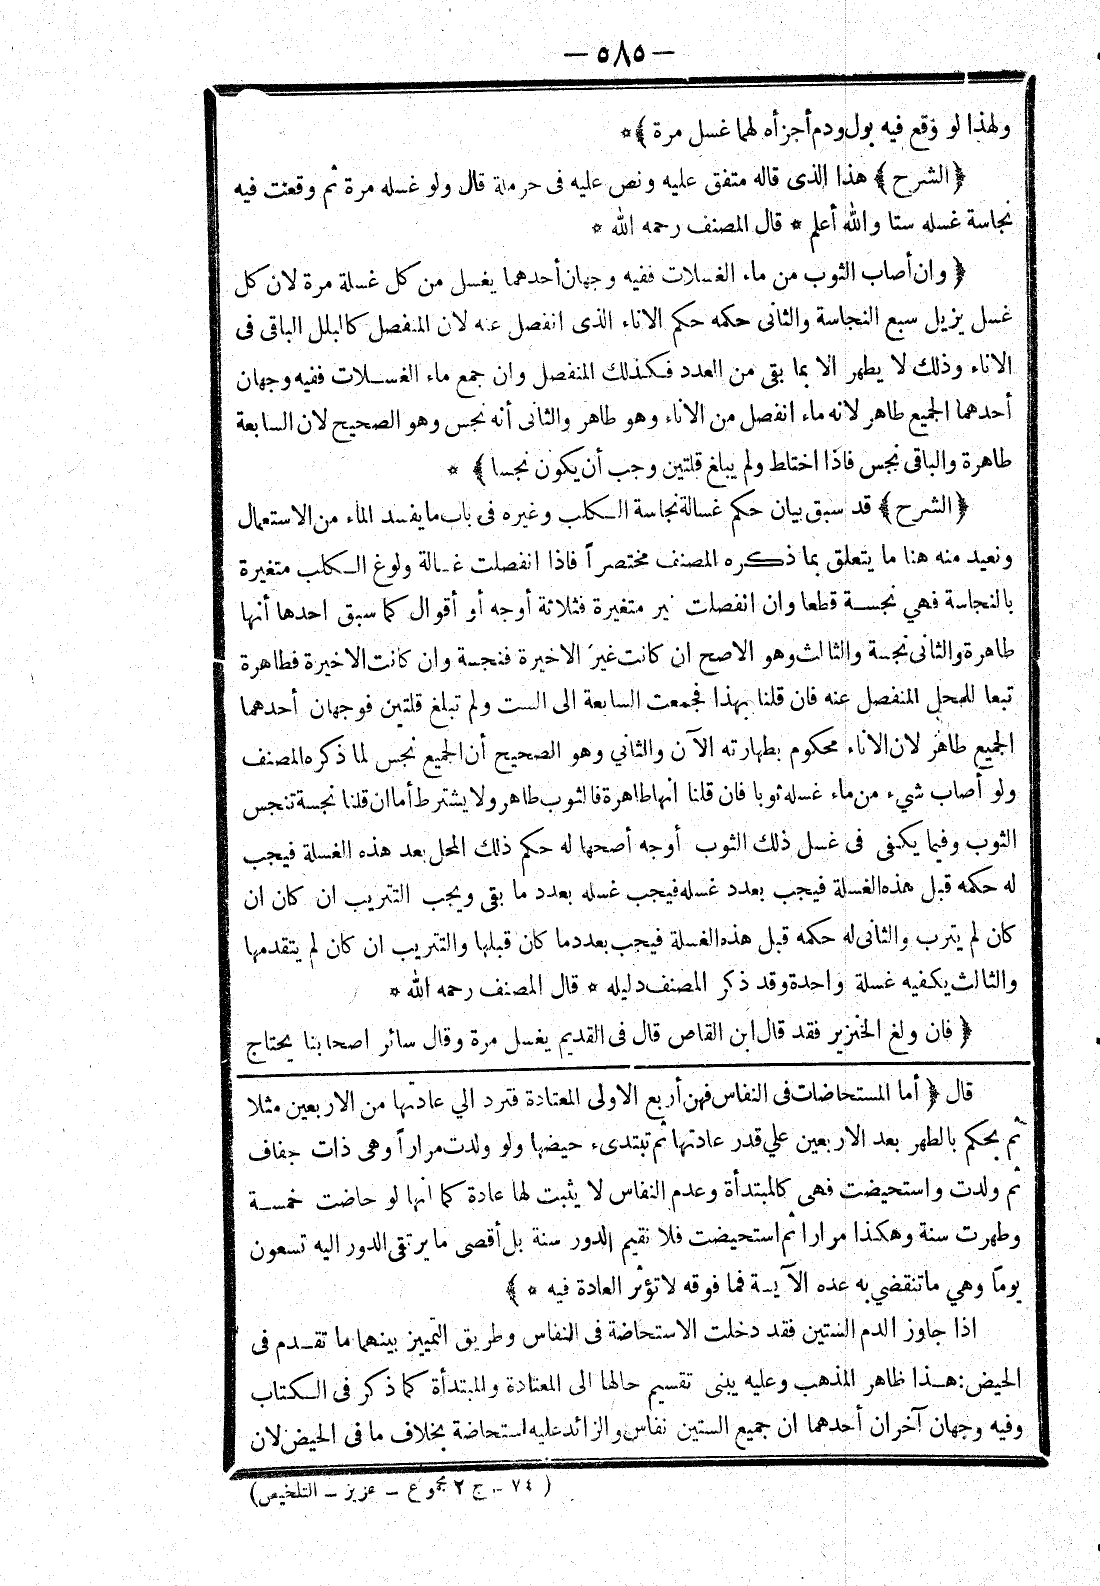 — ٥٨٥ —
ولهذا لو وقع فيه بول ودم أجزأه لهما غسل مرة ﴾*
﴿ الشرح ﴾ هذا الذى قاله متفق عليه ونص عليه فى حرملة قال ولو غسله مرة ثم وقعنت فيه
نجاسة غسله ستا والله أعلم * قال المصنف رحمه الله *
﴿ وان أصاب الثوب من ماء الغسلات ففيه وجهان أحدهما يغسل من كل غسلة مرة لان كل
غسل يزيل سبع النجاسة والثانى حكمه حكم الاناء الذى انفصل عنه لان المنفصل كالبلل الباقى فى
الاناء وذلك لا يطهر الا بما بقى من العدد فكذلك المنفصل وان جمع ماء الغسلات ففيه وجهان
أحدهما الجميع طاهر لانه ماء انفصل من الاناء وهو طاهر والثانى أنه نجس وهو الصحيح لان السابعة
طاهرة والباقى نجس فاذا اختلط ولم يبلغ قلتين وجب أن يكون نجسا ﴾ *
﴿ الشرح ﴾ قد سبق بيان حكم غسالة نجاسة الكلب وغيره فى باب ما يفسد الماء من الاستعمال
ونعيد منه هنا ما يتعلق بما ذكره المصنف مختصراً فاذا انفصلت غسالة ولوغ الكلب متغيرة
بالنجاسة فهي نجسة قطعا وان انفصلت غير متغيرة فثلاثة أوجه أو أقوال كما سبق احدها أنها
طاهرة والثانى نجسة والثالث وهو الاصح ان كانت غير الاخيرة فنجسة وان كانت الاخيرة فطاهرة
تبعا للمحل المنفصل عنه فان قلنا بهذا فجمعت السابعة الى الست ولم تبلغ قلتين فوجهان أحدهما
الجميع طاهر لان الاناء محكوم بطهارته الآن والثاني وهو الصحيح أن الجميع نجس لما ذكره المصنف
ولو أصاب شيء من ماء غسله ثوبا فان قلنا انها طاهرة فالثوب طاهر ولا يشترط أما ان قلنا نجسة تنجس
الثوب وفيما يكفى فى غسل ذلك الثوب أوجه أصحها له حكم ذلك المحل بعد هذه الغسلة فيجب
له حكمه قبل هذه الغسلة فيجب بعدد غسله فيجب غسله بعدد ما بقى ويجب التتريب ان كان ان
كان لم يترب والثانى له حكمه قبل هذه الغسلة فيجب بعدد ما كان قبلها والتتريب ان كان لم يتقدمها
والثالث يكفيه غسلة واحدة وقد ذكر المصنف دليله * قال المصنف رحمه الله *
﴿ فان ولغ الخنزير فقد قال ابن القاص قال فى القديم يغسل مرة وقال سائر اصحابنا يحتاج
قال ﴿ أما المستحاضات فى النفاس فهن أربع الاولى المعتادة فترد الي عادتها من الاربعين مثلا
ثم يحكم بالطهر بعد الاربعين علي قدر عادتها ثم تبتدىء حيضها ولو ولدت مراراً وهى ذات جفاف
ثم ولدت واستحيضت فهى كالمبتدأة وعدم النفاس لا يثبت لها عادة كما انها لو حاضت خمسة
وطهرت سنة وهكذا مرارا ثم استحيضت فلا نقيم الدور سنة بل أقصى ما يرتقى الدور اليه تسعون
يوما وهي ما تنقضي به عده الآيسة فما فوقه لا تؤثر العادة فيه * ﴾
اذا جاوز الدم الستين فقد دخلت الاستحاضة فى النفاس وطريق التمييز بينهما ما تقدم فى
الحيض: هذا ظاهر المذهب وعليه يبنى تقسيم حالها الى المعتادة والمبتدأة كما ذكر فى الكتاب
وفيه وجهان آخران أحدهما ان جميع الستين نفاس والزائد عليه استحاضة بخلاف ما فى الحيض لان
( ٧٤ - ج ٢ مجموع - عزيز - التلخيص)